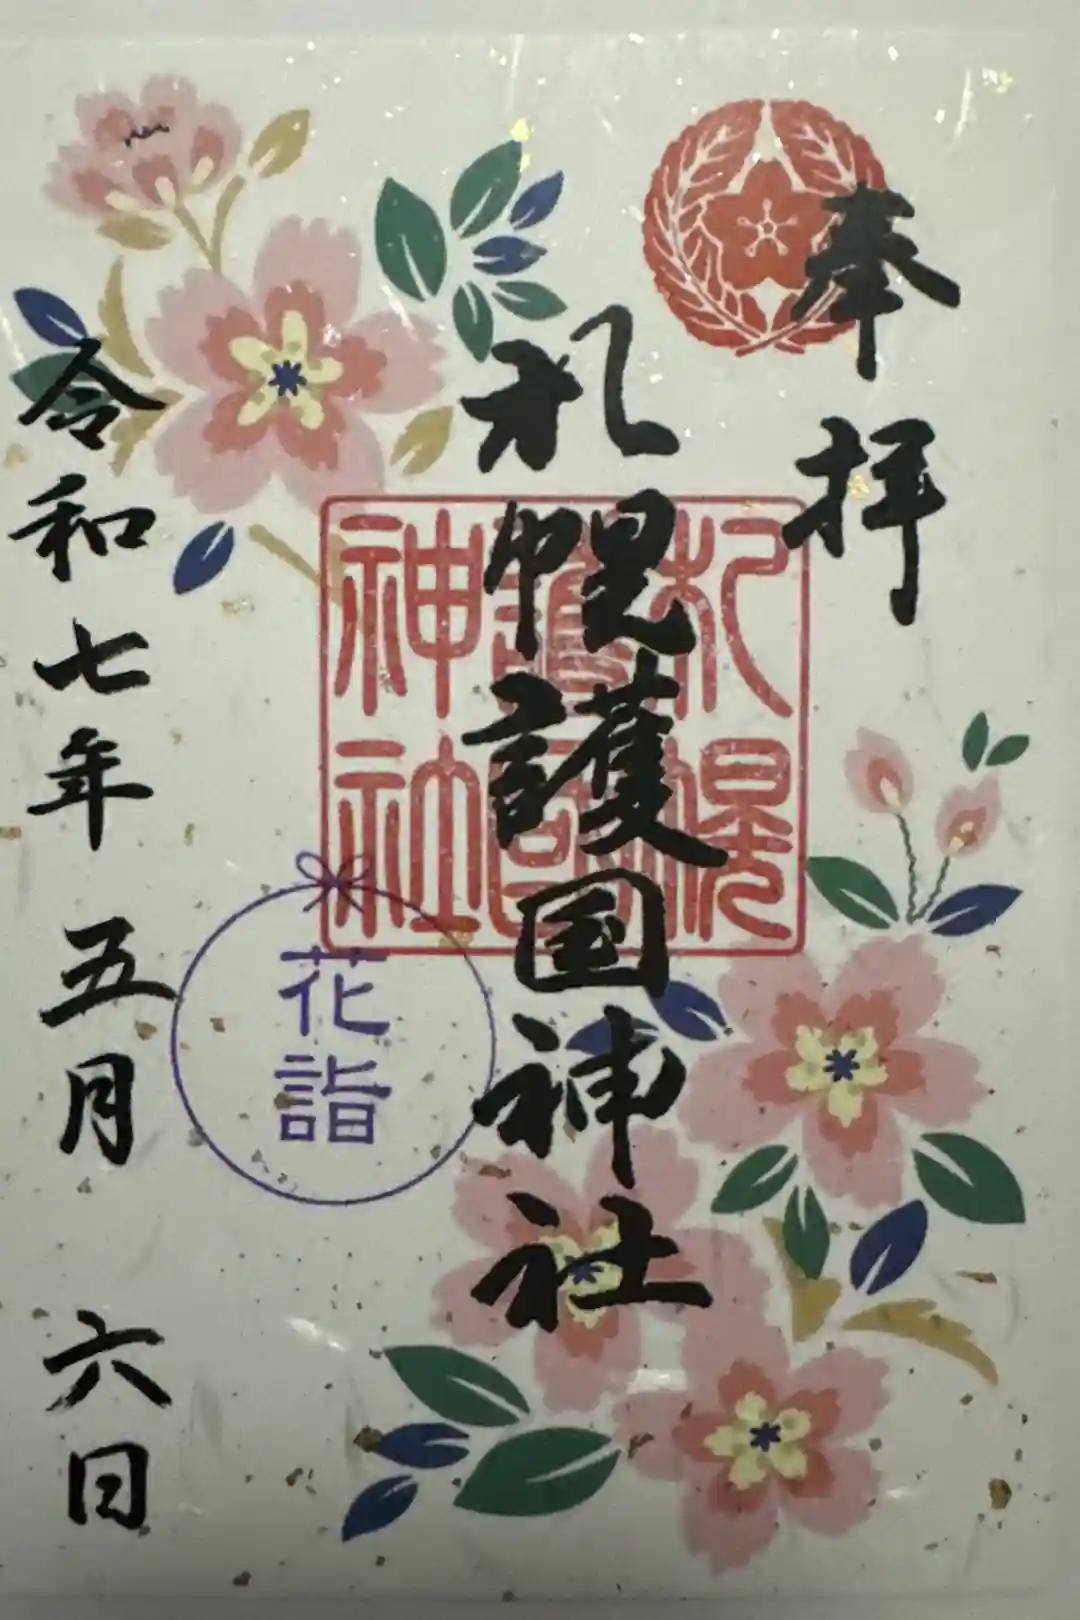 奉拝
札幌護国神社
札幌
護国
神社
花詣
令和七年五月六日